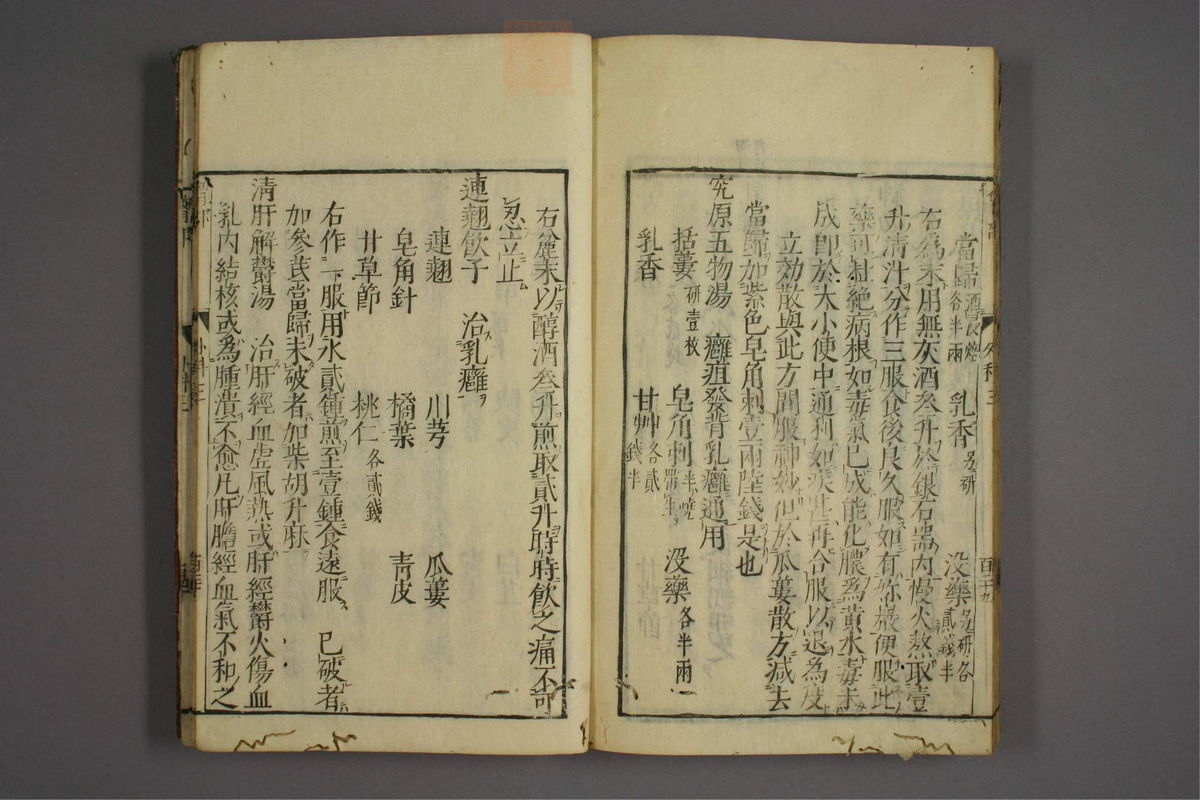 當歸酒浸焙各半兩 乳香另研 没藥另研各貳錢半
右為末用無灰酒叁升於銀石器内慢火熬取壹
升清汁分作三服食後良久服如有妳癰便服此
藥可杜絶病根如毒氣已成能化膿為黄水毒未
成即於大小便中通利如疾甚再合服以退為度
立効散與此方間服神妙但於瓜蔞散方減去
當歸加紫色皂角刺壹兩陸錢是也
究原五物湯 癰疽發背乳癰通用
括蔞研壹枚 皂角刺半燒帶生 没藥各半兩
乳香 甘艸各貳錢半
右麄末以醇酒叁升煎取貳升時時飲之痛不可
忍立止
連翹飲子 治乳癰
連翹 川芎 瓜蔞
皂角針 橘葉 青皮
甘草節 桃仁各貳錢
右作一服用水貳鍾煎至壹鍾食遠服 已破者
加參芪當歸未破者加柴胡升麻
清肝解鬱湯 治肝經血虚風熱或肝經鬱火傷血
乳内結核或為腫潰不愈凡肝膽經血氣不和之